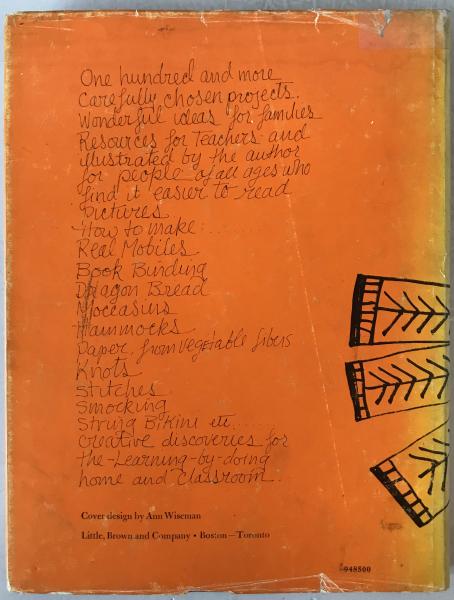 One hundred and more
Carefully chosen projects.
Wonderful ideas for families
Resources for Teachers and
illustrated by the author
for people of all ages who
find it easier to read
pictures
How to make:........
Real Mobiles
Book Binding
Dragon Bread
Moccasins
Hammocks
Paper, from vegetable fibers
Knots
Stitches
Smocking
String Bikini etc......
creative discoveries for
the-Learning-by-doing
home and classroom.
Cover design by Ann Wiseman
Little, Brown and Company • Boston—Toronto
948500